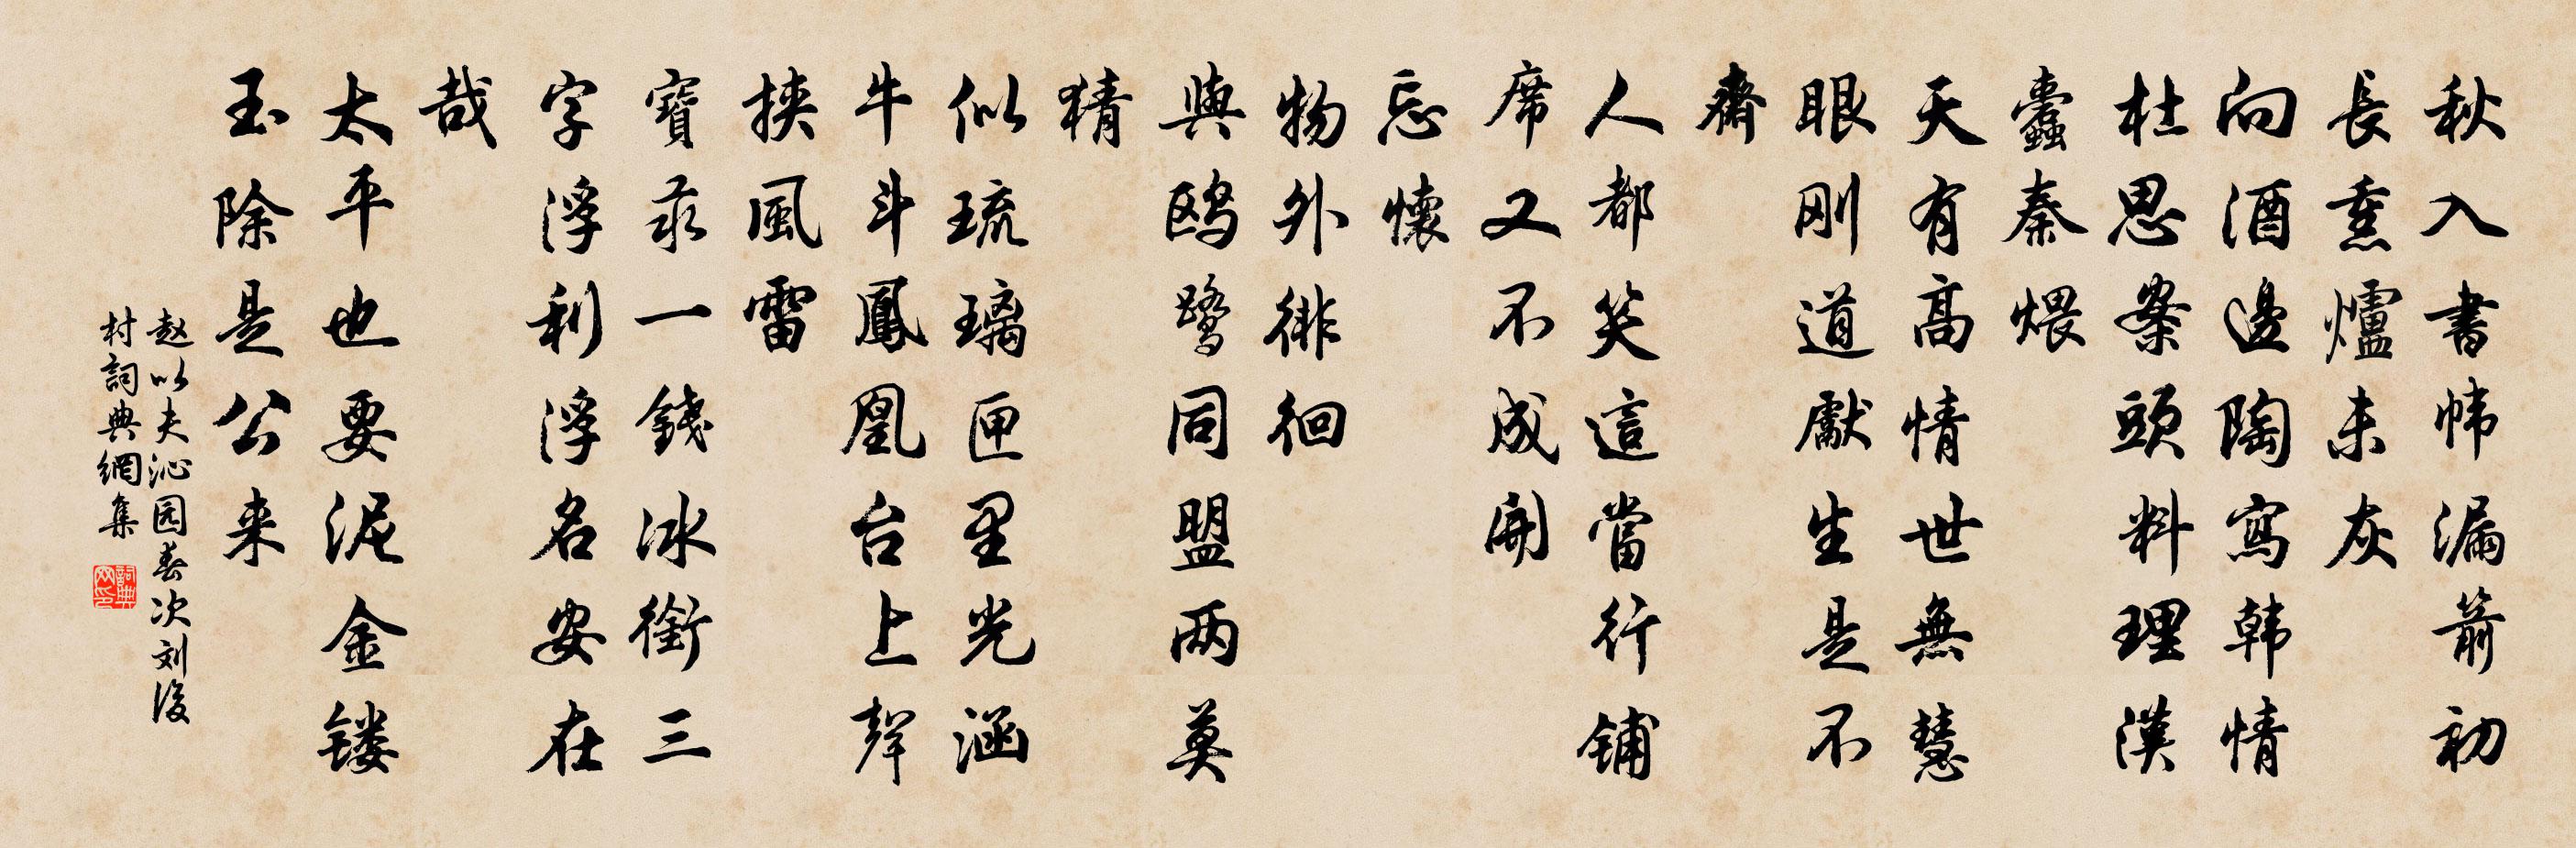 秋入書帏漏箭初
長熏爐未灰
向酒邊陶寫韩情
杜思案頭料理漢
蠹秦煨
天有高情世無慧
眼刚道獻生是不
齋
人都笑這當行铺
席又不成開
忘懷
物外徘徊
與鸥鹭同盟两莫
猜
似琉璃匣里光涵
牛斗鳳凰台上聲
挾風雷
寶汞一錢冰銜三
字浮利浮名安在
哉
太平也要泥金镂
玉除是公来
赵以夫沁园春次刘後
村詞典網集
詞典网印